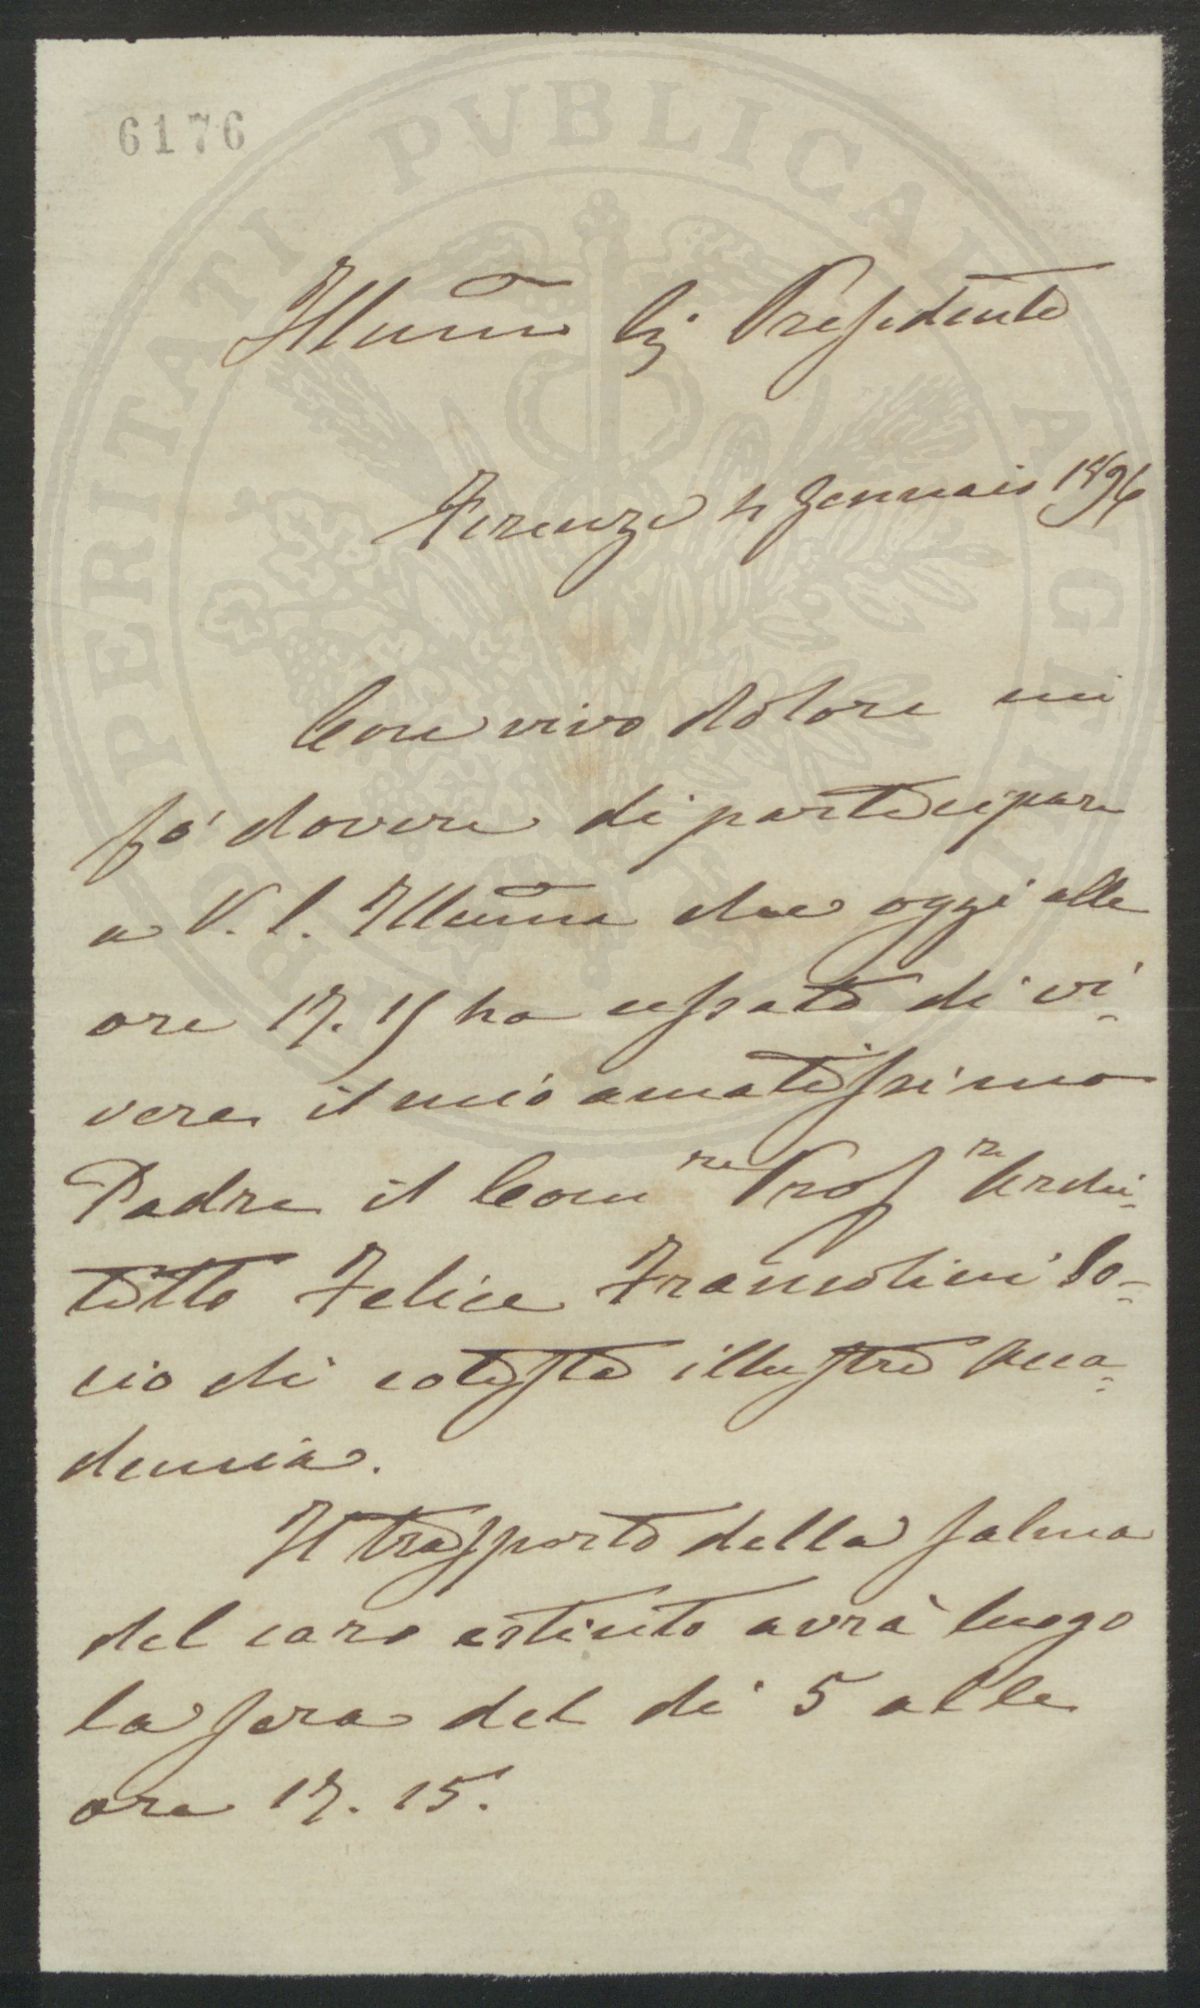 6176
PROSPERITATI PVBLICAE AVGENDAE
Illumo Sig Presidente
Firenze 4 Gennaio 1896
Con vivo dolore mi
fò dovere di partecipare
a V. S. Illuma che oggi alle
ore 17. 15 ha cessato di vi-
vere il mio amatissimo
Padre il Comre Profre Archi-
tetto Felice Francolini So-
cio di cotesta illustre Acca-
demia.
Il trasporto della salma
del caro estinto avrà luogo
la sera del dì 5 alle
ore 17. 15.